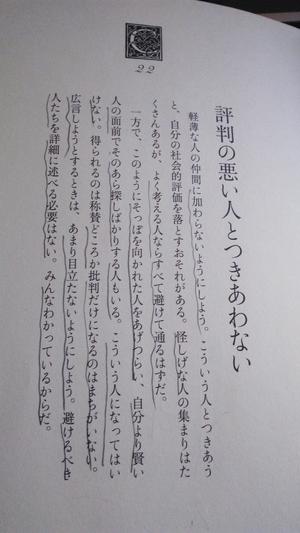 C
22
評判の悪い人とつきあわない
軽薄な人の仲間に加わらないようにしよう。こういう人とつきあう
と、自分の社会的評価を落とすおそれがある。怪しげな人の集まりはた
くさんあるが、よく考える人ならすべて避けて通るはずだ。
一方で、このようにそっぽを向かれた人をあげつらい、自分より賢い
人の面前でそのあら探しばかりする人もいる。こういう人になってはい
けない。得られるのは称賛どころか批判だけになるのはまちがいない。
広言しようとするときは、あまり目立たないようにしよう。避けるべき
人たちを詳細に述べる必要はない。みんなわかっているからだ。